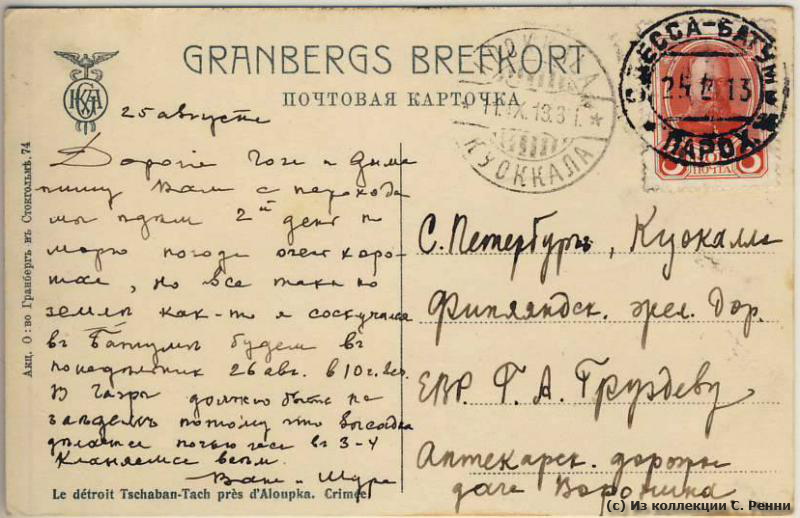 GRANBERGS BREFKORT
ПОЧТОВАЯ КАРТОЧКА
25 августа
Дорогіе Гога и Дима
пишу Вам с парохода
мы едем 2й день по
морю погода очень хоро-
шая, но все таки по
земле как-то я соскучился
в Батуми будем в
понедельник 26 авг. в 10 г. веч.
В Гагры должно быть не
заедем потому что высадка
делается ночью часа в 3-4
Кланяемся всем.
Ваня и Шура
С. Петербургъ, Куокалла
Финляндск. жел. Дор.
ЕВР. Г. А. Груздеву
Аптекарск. дорожка
дача Воронина
ОДЕССА-БАТУМЪ
25 13
ПАРОХ.
ПОЧТА
КУОККАЛА
11.IX.13
КУОККАЛА
Акц. О:во Гранбергъ въ Стокгольмѣ. 74
Le détroit Tschaban-Tach près d'Aloupka. Crimée
(c) Из коллекции С. Ренни